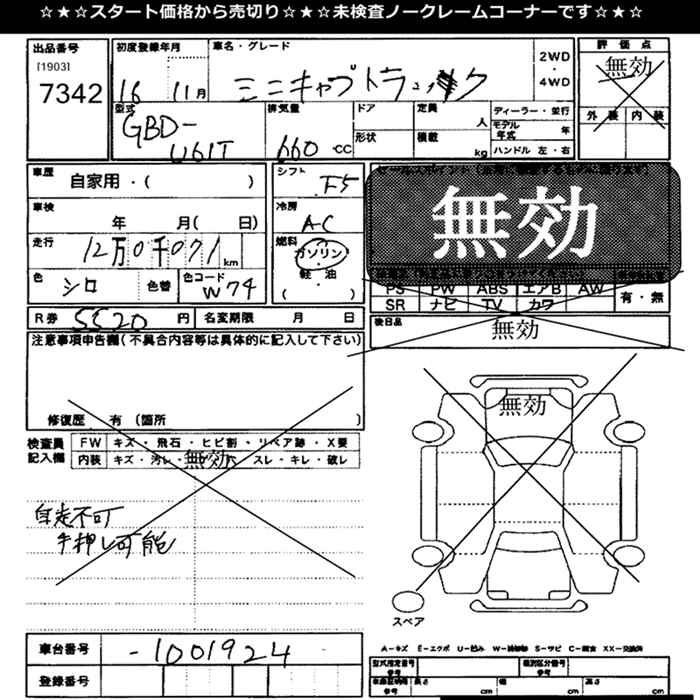 ☆★☆★スタート価格から売切り☆★☆★未検査ノークレームコーナーです☆★☆
出品番号 初度登録年月 車名・グレード 2WD・4WD 評価点
[1903] 7342 16 11月 ミニキャブトラック 無効
型式 排気量 ドア 定員 人 ディーラー・並行 外装 内装
GBD-U61T 660 CC 形状 積載 kg モデル年式 年
ハンドル 左・右
車歴 自家用・( ) シフト F5
車検 年 月( 日) 冷房 A-C 無効
走行 12万0千071km 燃料 ガソリン
軽・油
( )
色 シロ 色替 色コード W74
PS PW ABS エアB AW 有・無
SR ナビ TV カワ
R券 5520円 名変期限 月 日 後日品 無効
注意事項申告欄(不具合内容等は具体的に記入して下さい)
修復歴 有 (箇所 無効
検査員記入欄 FW キズ・飛石・ヒビ割・リペア跡・X要
内装 キズ・汚レ・ 無効 穴 スレ・キレ・破レ
自走不可
手押し可能
スペア
車台番号 -1001924
A-キズ E-エクボ U-凹み S-サビ XX-交換済
登録番号 型式指定番号 参考 類別区分番号 参考
長さ cm 幅 cm 高さ cm